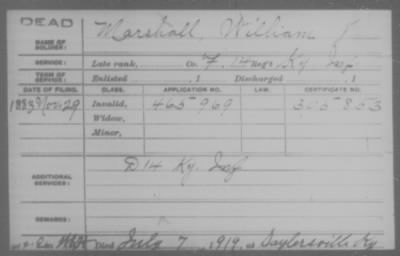 DEAD
NAME OF SOLDIER: Marshall, William F
SERVICE: Late rank, Co. F, 14 Reg't Ky Inf
TERM OF SERVICE: Enlisted , 1 Discharged , 1
DATE OF FILING. CLASS. APPLICATION NO. LAW. CERTIFICATE NO.
1883 Nov 29 Invalid, 465969 305853
Widow,
Minor,
ADDITIONAL SERVICES: D 14 Ky. Inf
REMARKS:
Died July 7, 1919, at Saylersville Ky